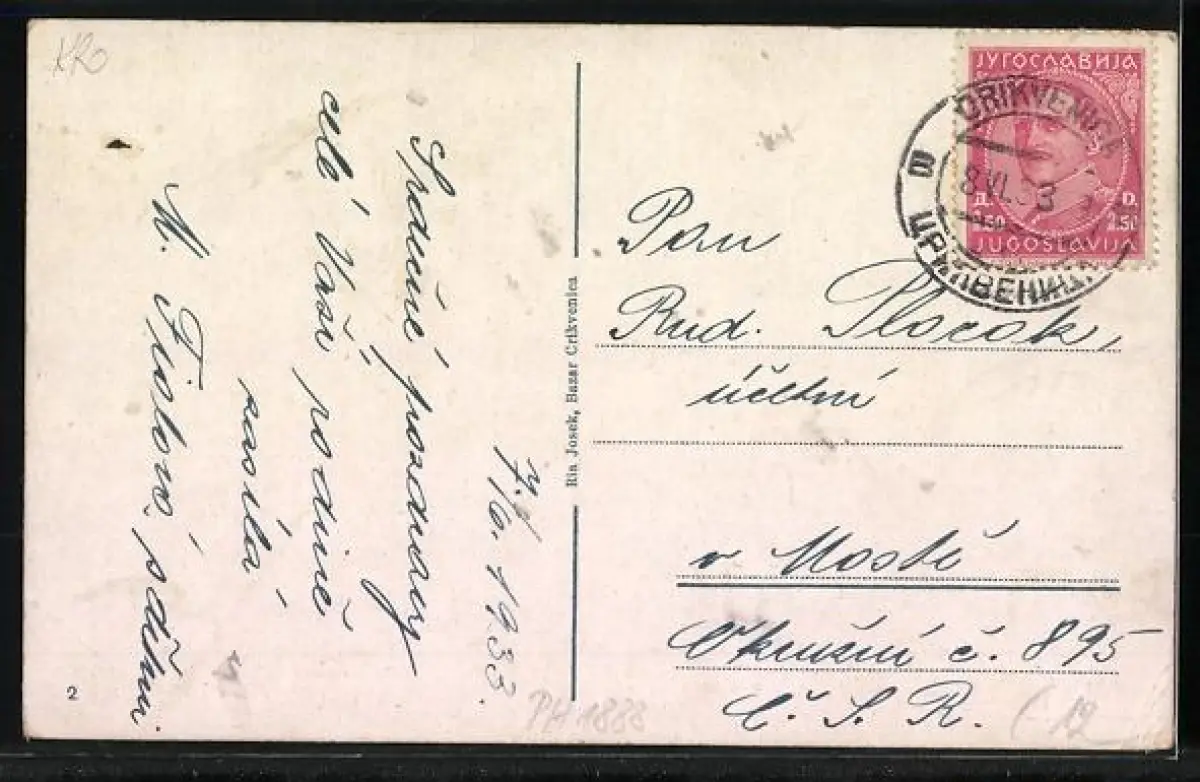 XR
7./6. 1933.
Srdečné pozdravy
celé Vaší rodině
zasílá
M. Fialová, s dětmi.
2
Ria Josek, Bazar Crikvenica
ЈУГОСЛАВИЈА
Д. D.
2.50 2.50
JUGOSLAVIJA
CRIKVENICA
8.VI.33
ЦРИКВЕНИЦА
Pan
Rud. Plocek,
účetní
v Mostě
Okružní č. 895
Č. S. R.
PH 1888
(12